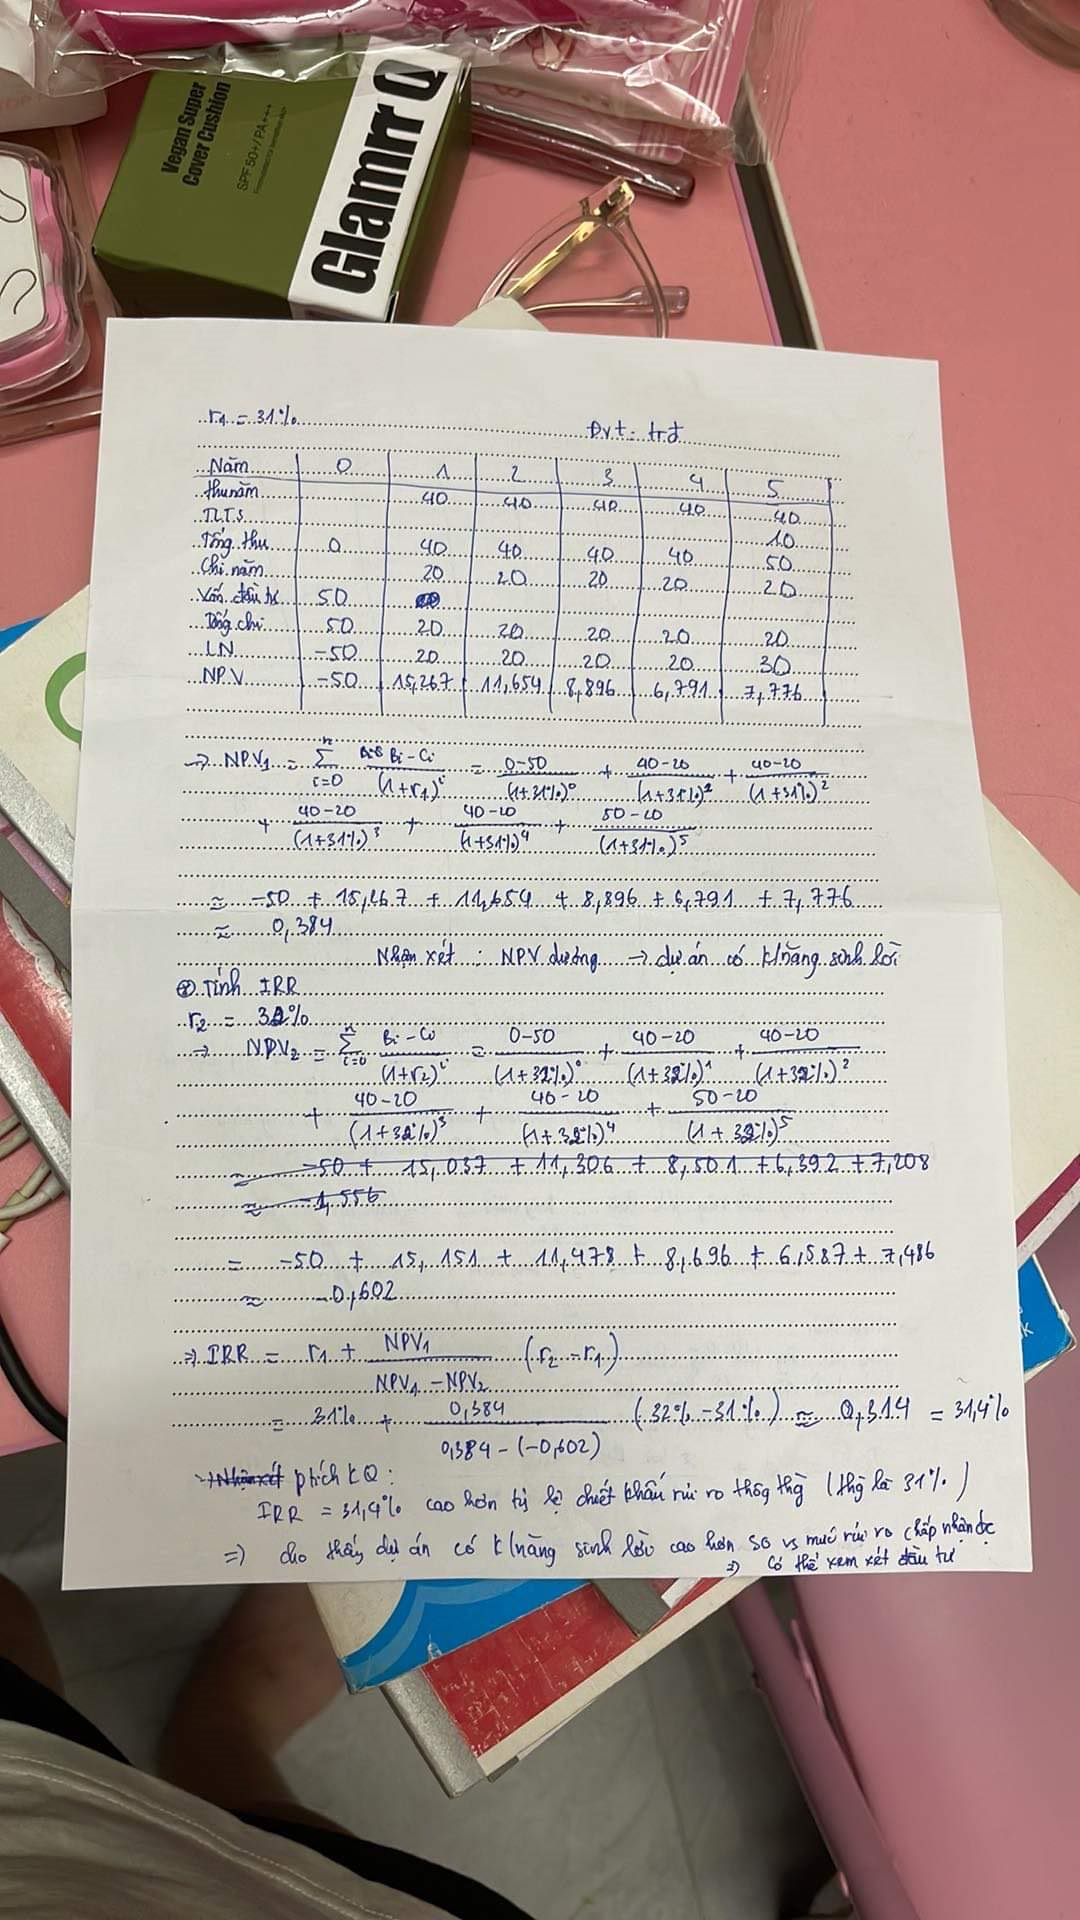 Vegan Super
Cover Cushion
SPF 50+/PA+++
Glamrr Q
r1 = 31%
Đvt: trđ
Năm 0 1 2 3 4 5
thu năm 40 40 40 40 40
TLTS 10
Tổng thu 0 40 40 40 40 50
Chi năm 20 20 20 20 20
Vốn đầu tư 50
Tổng chi 50 20 20 20 20 20
LN -50 20 20 20 20 30
NPV -50 15,267 11,654 8,896 6,791 7,776
=> NPV1 = n∑i=0 Bi - Ci/(1+r1)^i = 0-50/(1+31%)^0 + 40-20/(1+31%)^2 + 40-20/(1+31%)^2
+ 40-20/(1+31%)^3 + 40-20/(1+31%)^4 + 50-20/(1+31%)^5
≈ -50 + 15,267 + 11,654 + 8,896 + 6,791 + 7,776
≈ 0,384
Nhận xét : NPV dương → dự án có k/năng sinh lời
Tính IRR
r2 = 32%
=> NPV2 = n∑i=0 Bi - Ci/(1+r2)^i = 0-50/(1+32%)^0 + 40-20/(1+32%)^1 + 40-20/(1+32%)^2
+ 40-20/(1+32%)^3 + 40-20/(1+32%)^4 + 50-20/(1+32%)^5
≈ -50 + 15,037 + 11,306 + 8,501 + 6,392 + 7,208
≈ -1,556
= -50 + 15,151 + 11,478 + 8,696 + 6,587 + 7,486
≈ -0,602
=> IRR = r1 + NPV1/NPV1 - NPV2 (r2 - r1)
= 31% + 0,384/0,384 - (-0,602) (32% - 31%) ≈ 0,314 = 31,4%
=> Nhận xét ptích KQ :
IRR = 31,4% cao hơn tỷ lệ chiết khấu rủi ro thôg thg (thg là 31%)
=> cho thấy dự án có k/năng sinh lời cao hơn so vs mức rủi ro chấp nhận đc
=> Có thể xem xét đầu tư